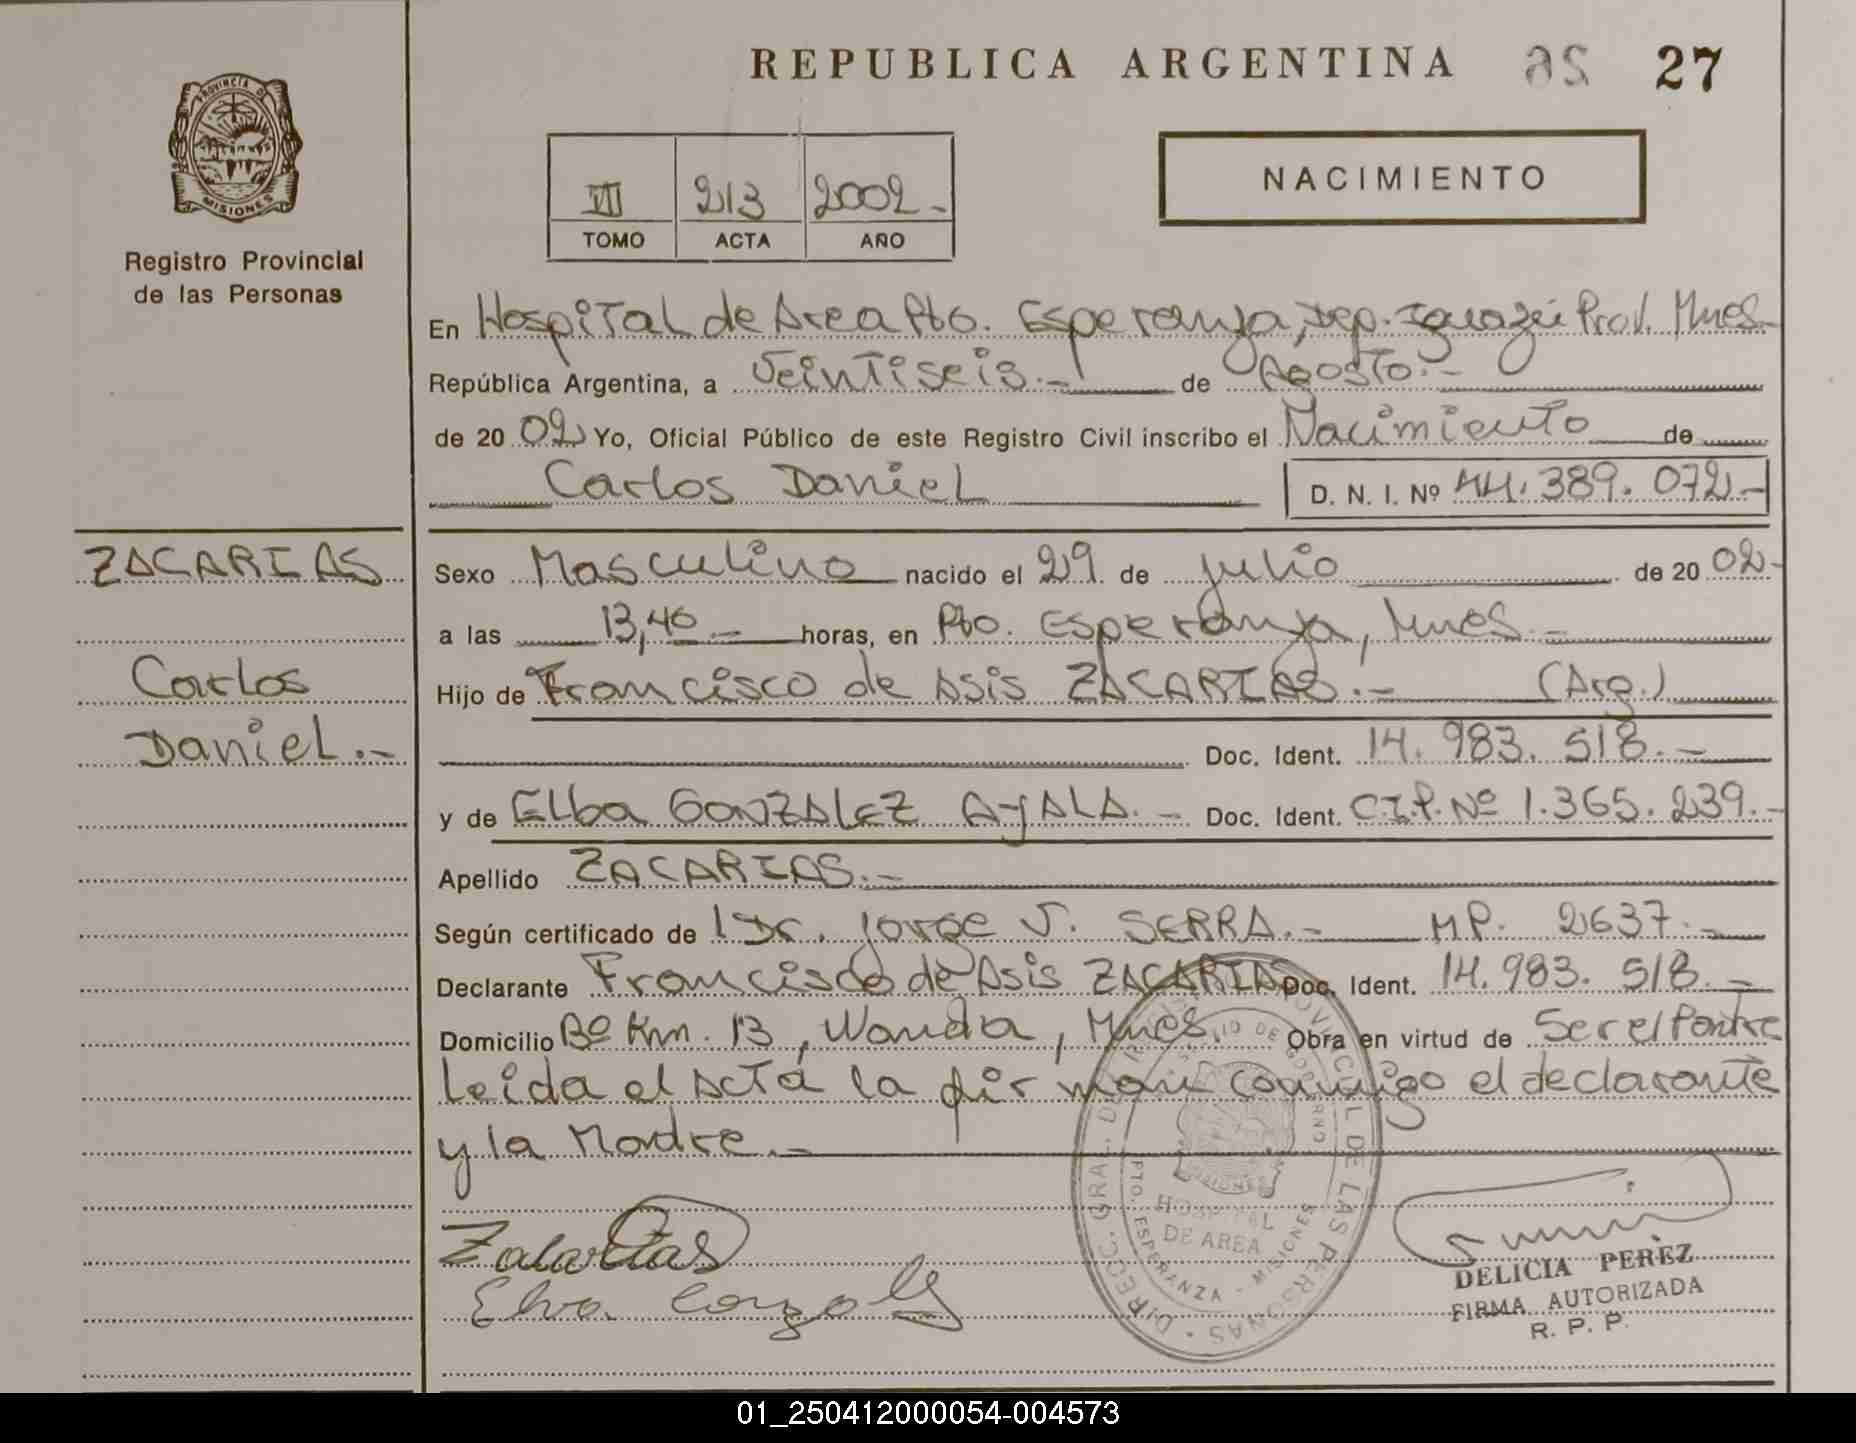 REPUBLICA ARGENTINA 26 27
PROVINCIA DE
MISIONES
Registro Provincial
de las Personas
VII 213 2002-
TOMO ACTA AÑO
NACIMIENTO
En Hospital de Area Pto. Esperanza, Dep. Iguazú Prov. Mnes-
República Argentina, a Veintiseis.- de Agosto.-
de 20 02 Yo, Oficial Público de este Registro Civil inscribo el Nacimiento de
Carlos Daniel D. N. I. Nº 44.389.072-
ZACARIAS
Carlos
Daniel.-
Sexo Masculino nacido el 29 de julio de 20 02-
a las 13,40- horas, en Pto. Esperanza, Mnes.-
Hijo de Francisco de Asis ZACARIAS.- (Arg.)
Doc. Ident. 14.983.518.-
y de Elba GONZALEZ AYALA.- Doc. Ident. C.I.P. Nº 1.365.239.-
Apellido ZACARIAS.-
Según certificado de Dr. Jorge V. SERRA.- MP. 2637.-
Declarante Francisco de Asis ZACARIAS Doc. Ident. 14.983.518.-
Domicilio Bº Km. 13, Wanda, Mnes. Obra en virtud de Ser el Padre
Leida el Acta la firman conmigo el declarante
y la Madre.-
Zacarias
Elva Gonzalez
DIREC. GRAL. DEL REGISTRO PROVINCIAL DE LAS PERSONAS
HOSPITAL
DE AREA
PTO. ESPERANZA - MISIONES
DELICIA PEREZ
FIRMA AUTORIZADA
R. P. P.
01_250412000054-004573